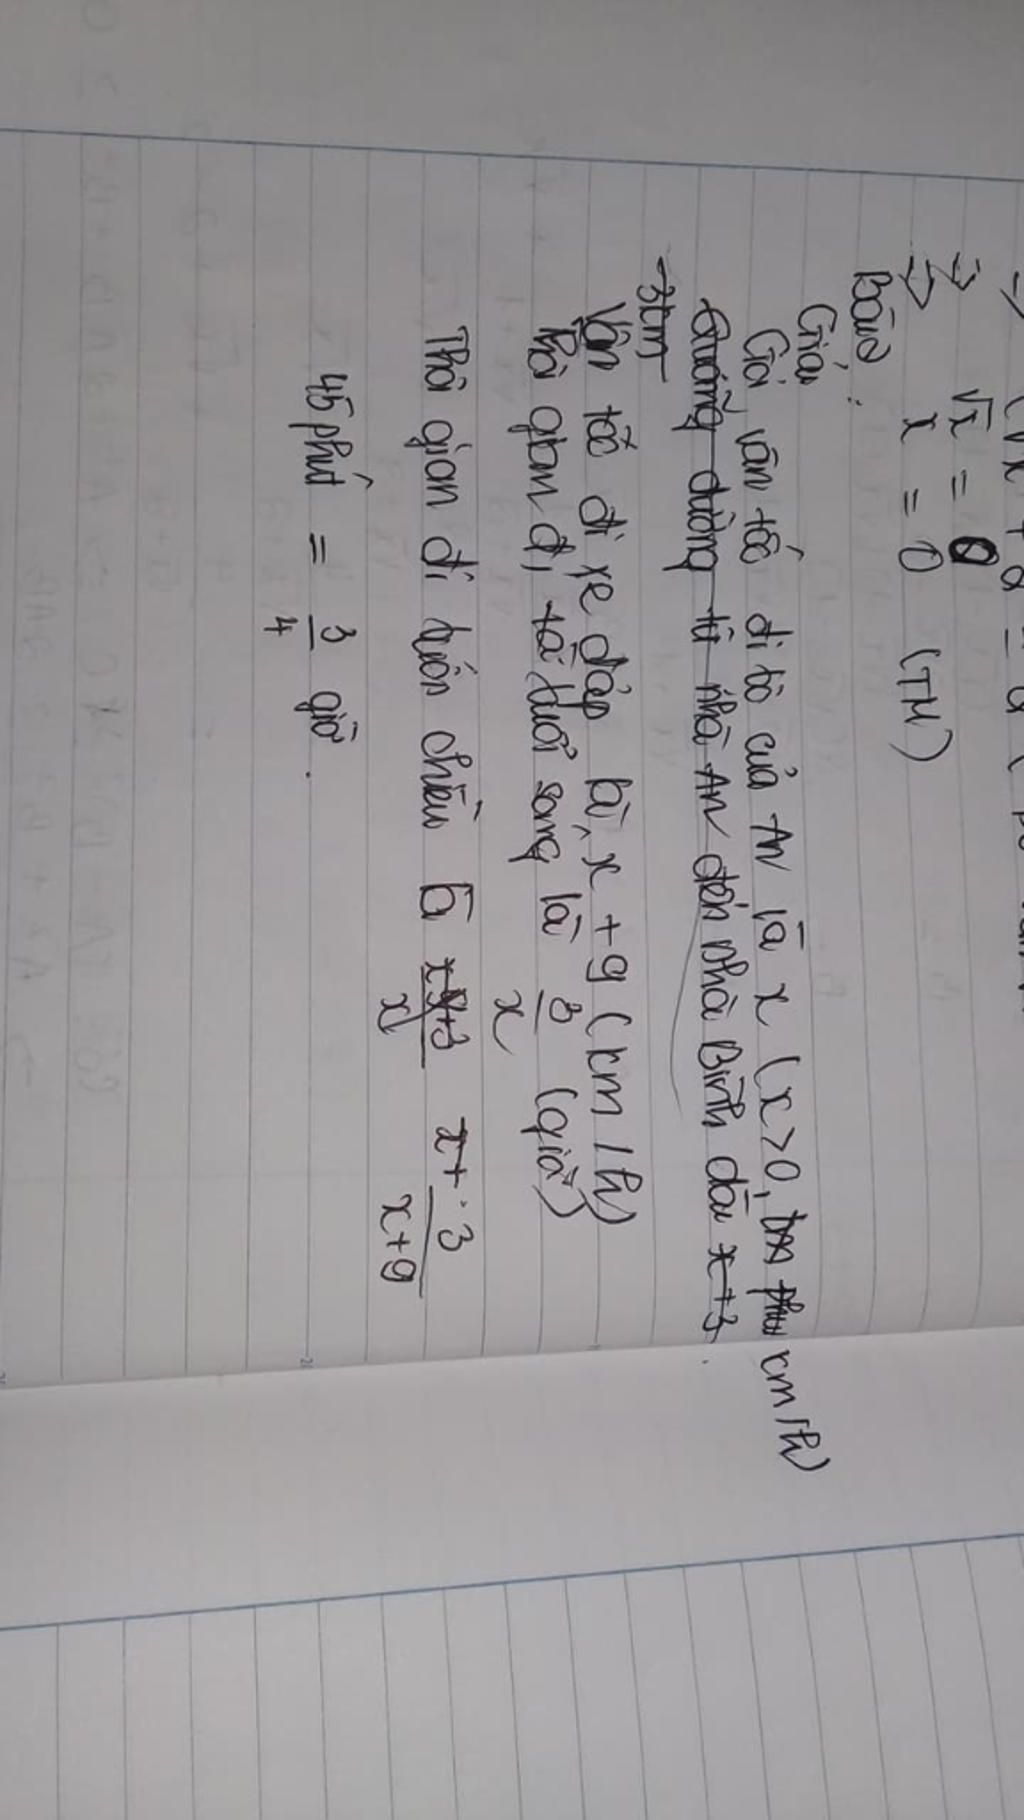 → √x = 0
→ x = 0 (TM)
Bài 2 :
Giải
Gọi vận tốc đi bộ của An là x (x>0, km/h)
Quãng đường từ nhà An đến nhà Bình dài x+3
3km
Vận tốc đi xe đạp là x +9 (km/h)
Thời gian đi tới buổi sáng là 3/x (giờ)
Thời gian đi buổi chiều là 3/x+9
45 phút = 3/4 giờ.